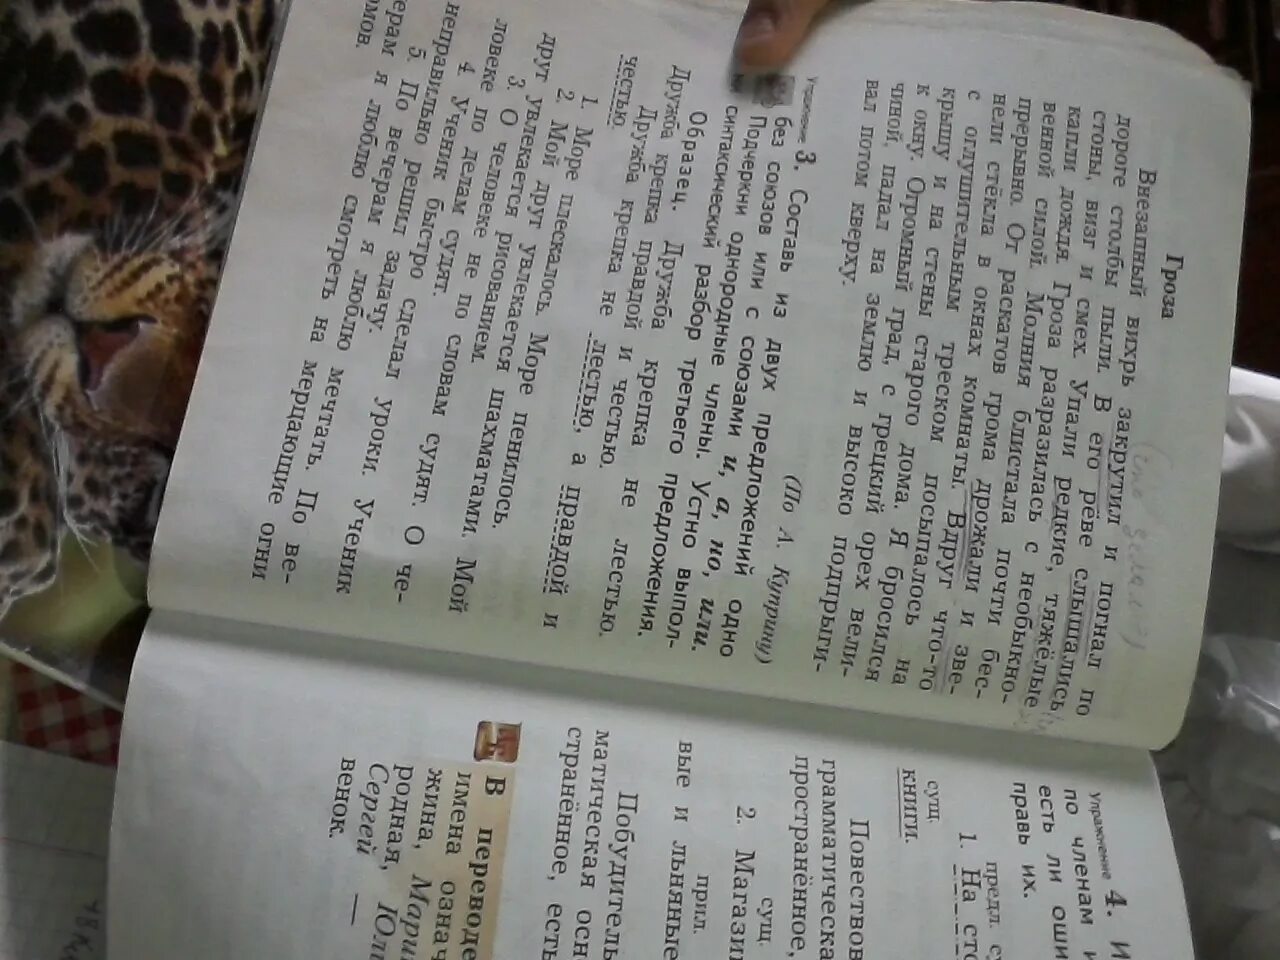 Гроза
Внезапный вихрь закрутил и погнал по
дороге столбы пыли. В его реве слышались
стоны, визг и смех. Упали редкие, тяжёлые
капли дождя. Гроза разразилась с необыкно-
венной силой. Молния блистала почти бес-
прерывно. От раскатов грома дрожали и зве-
нели стёкла в окнах комнаты. Вдруг что-то
с оглушительным треском посыпалось на
крышу и на стены старого дома. Я бросился
к окну. Огромный град, с грецкий орех вели-
чиной, падал на землю и высоко подпрыги-
вал потом кверху.
(По А. Куприну)
Упражнение 3. Составь из двух предложений одно
без союзов или с союзами и, а, но, или.
Подчеркни однородные члены. Устно выпол-
ни синтаксический разбор третьего предложения.
Образец. Дружба крепка не лестью.
Дружба крепка правдой и честью.
Дружба крепка не лестью, а правдой и
честью.
1. Море плескалось. Море пенилось.
2. Мой друг увлекается шахматами. Мой
друг увлекается рисованием.
3. О человеке не по словам судят. О че-
ловеке по делам судят.
4. Ученик быстро сделал уроки. Ученик
неправильно решил задачу.
5. По вечерам я люблю мечтать. По ве-
черам я люблю смотреть на мерцающие огни
домов.
Упражнение 4. И
по членам и
есть ли оши
правь их.
предл.
1. На сто
сущ.
книги.
Повествов
грамматическа
пространённое,
сущ.
2. Магази
прил.
вые и льняные
Побудитель
матическая осн
странённое, есть
В переводе
имена означ
жина, Марин
родная, Юли
Сергей —
венок.